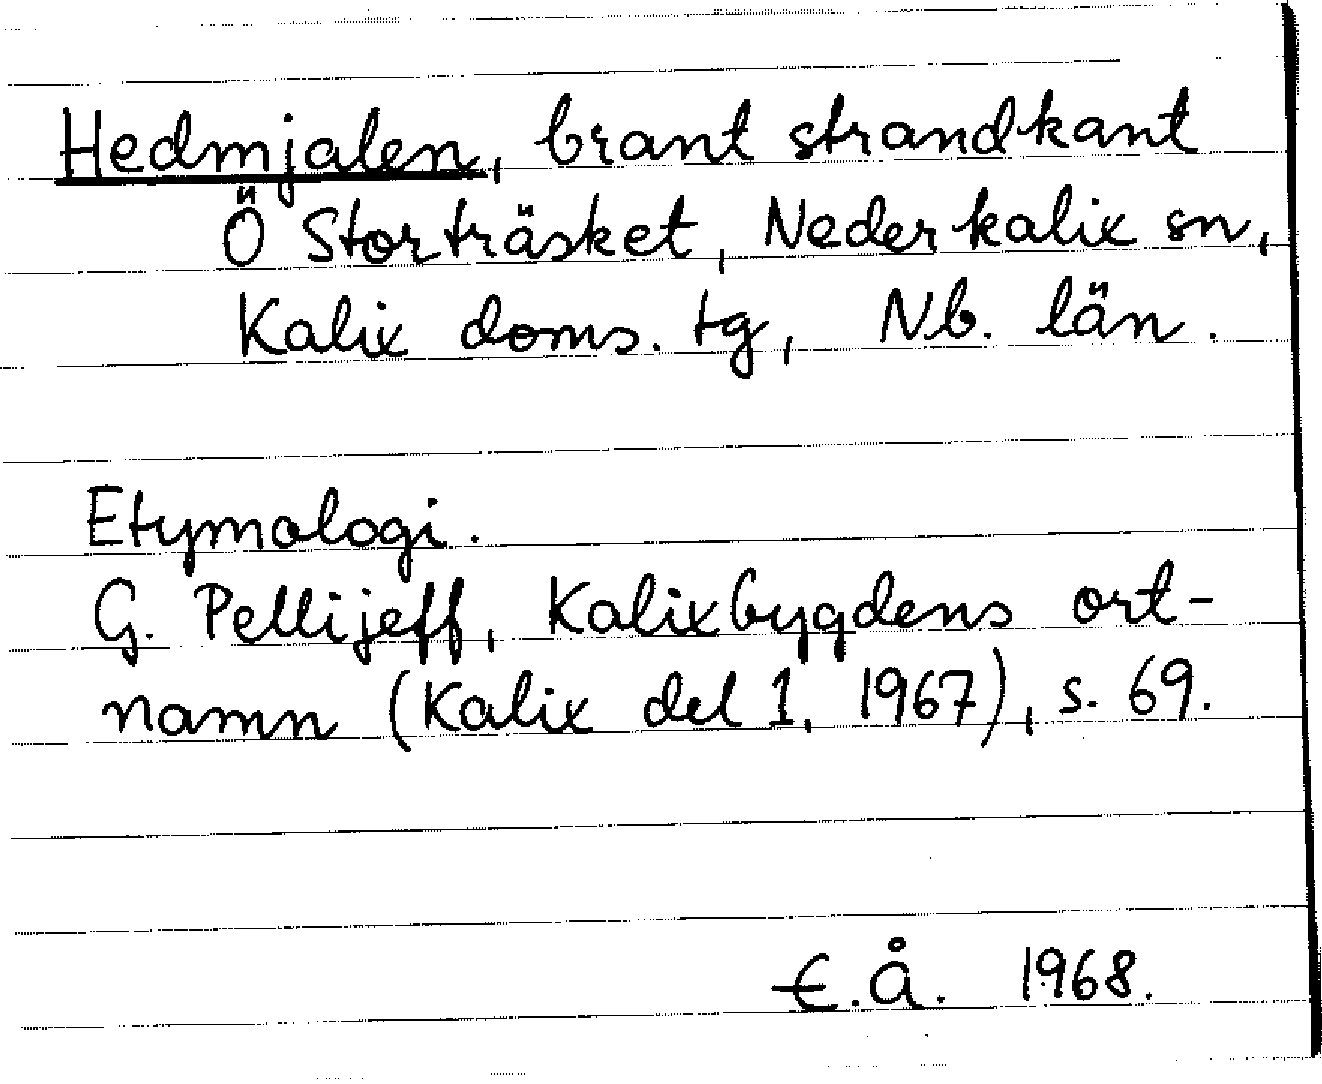 Hedmjalen, brant strandkant
Ö Storträsket, Nederkalix sn,
Kalix doms. tg, Nb. län.
Etymologi.
G. Pellijeff, Kalixbygdens ort-
namn (Kalix del 1, 1967), s. 69.
E.Å. 1968.